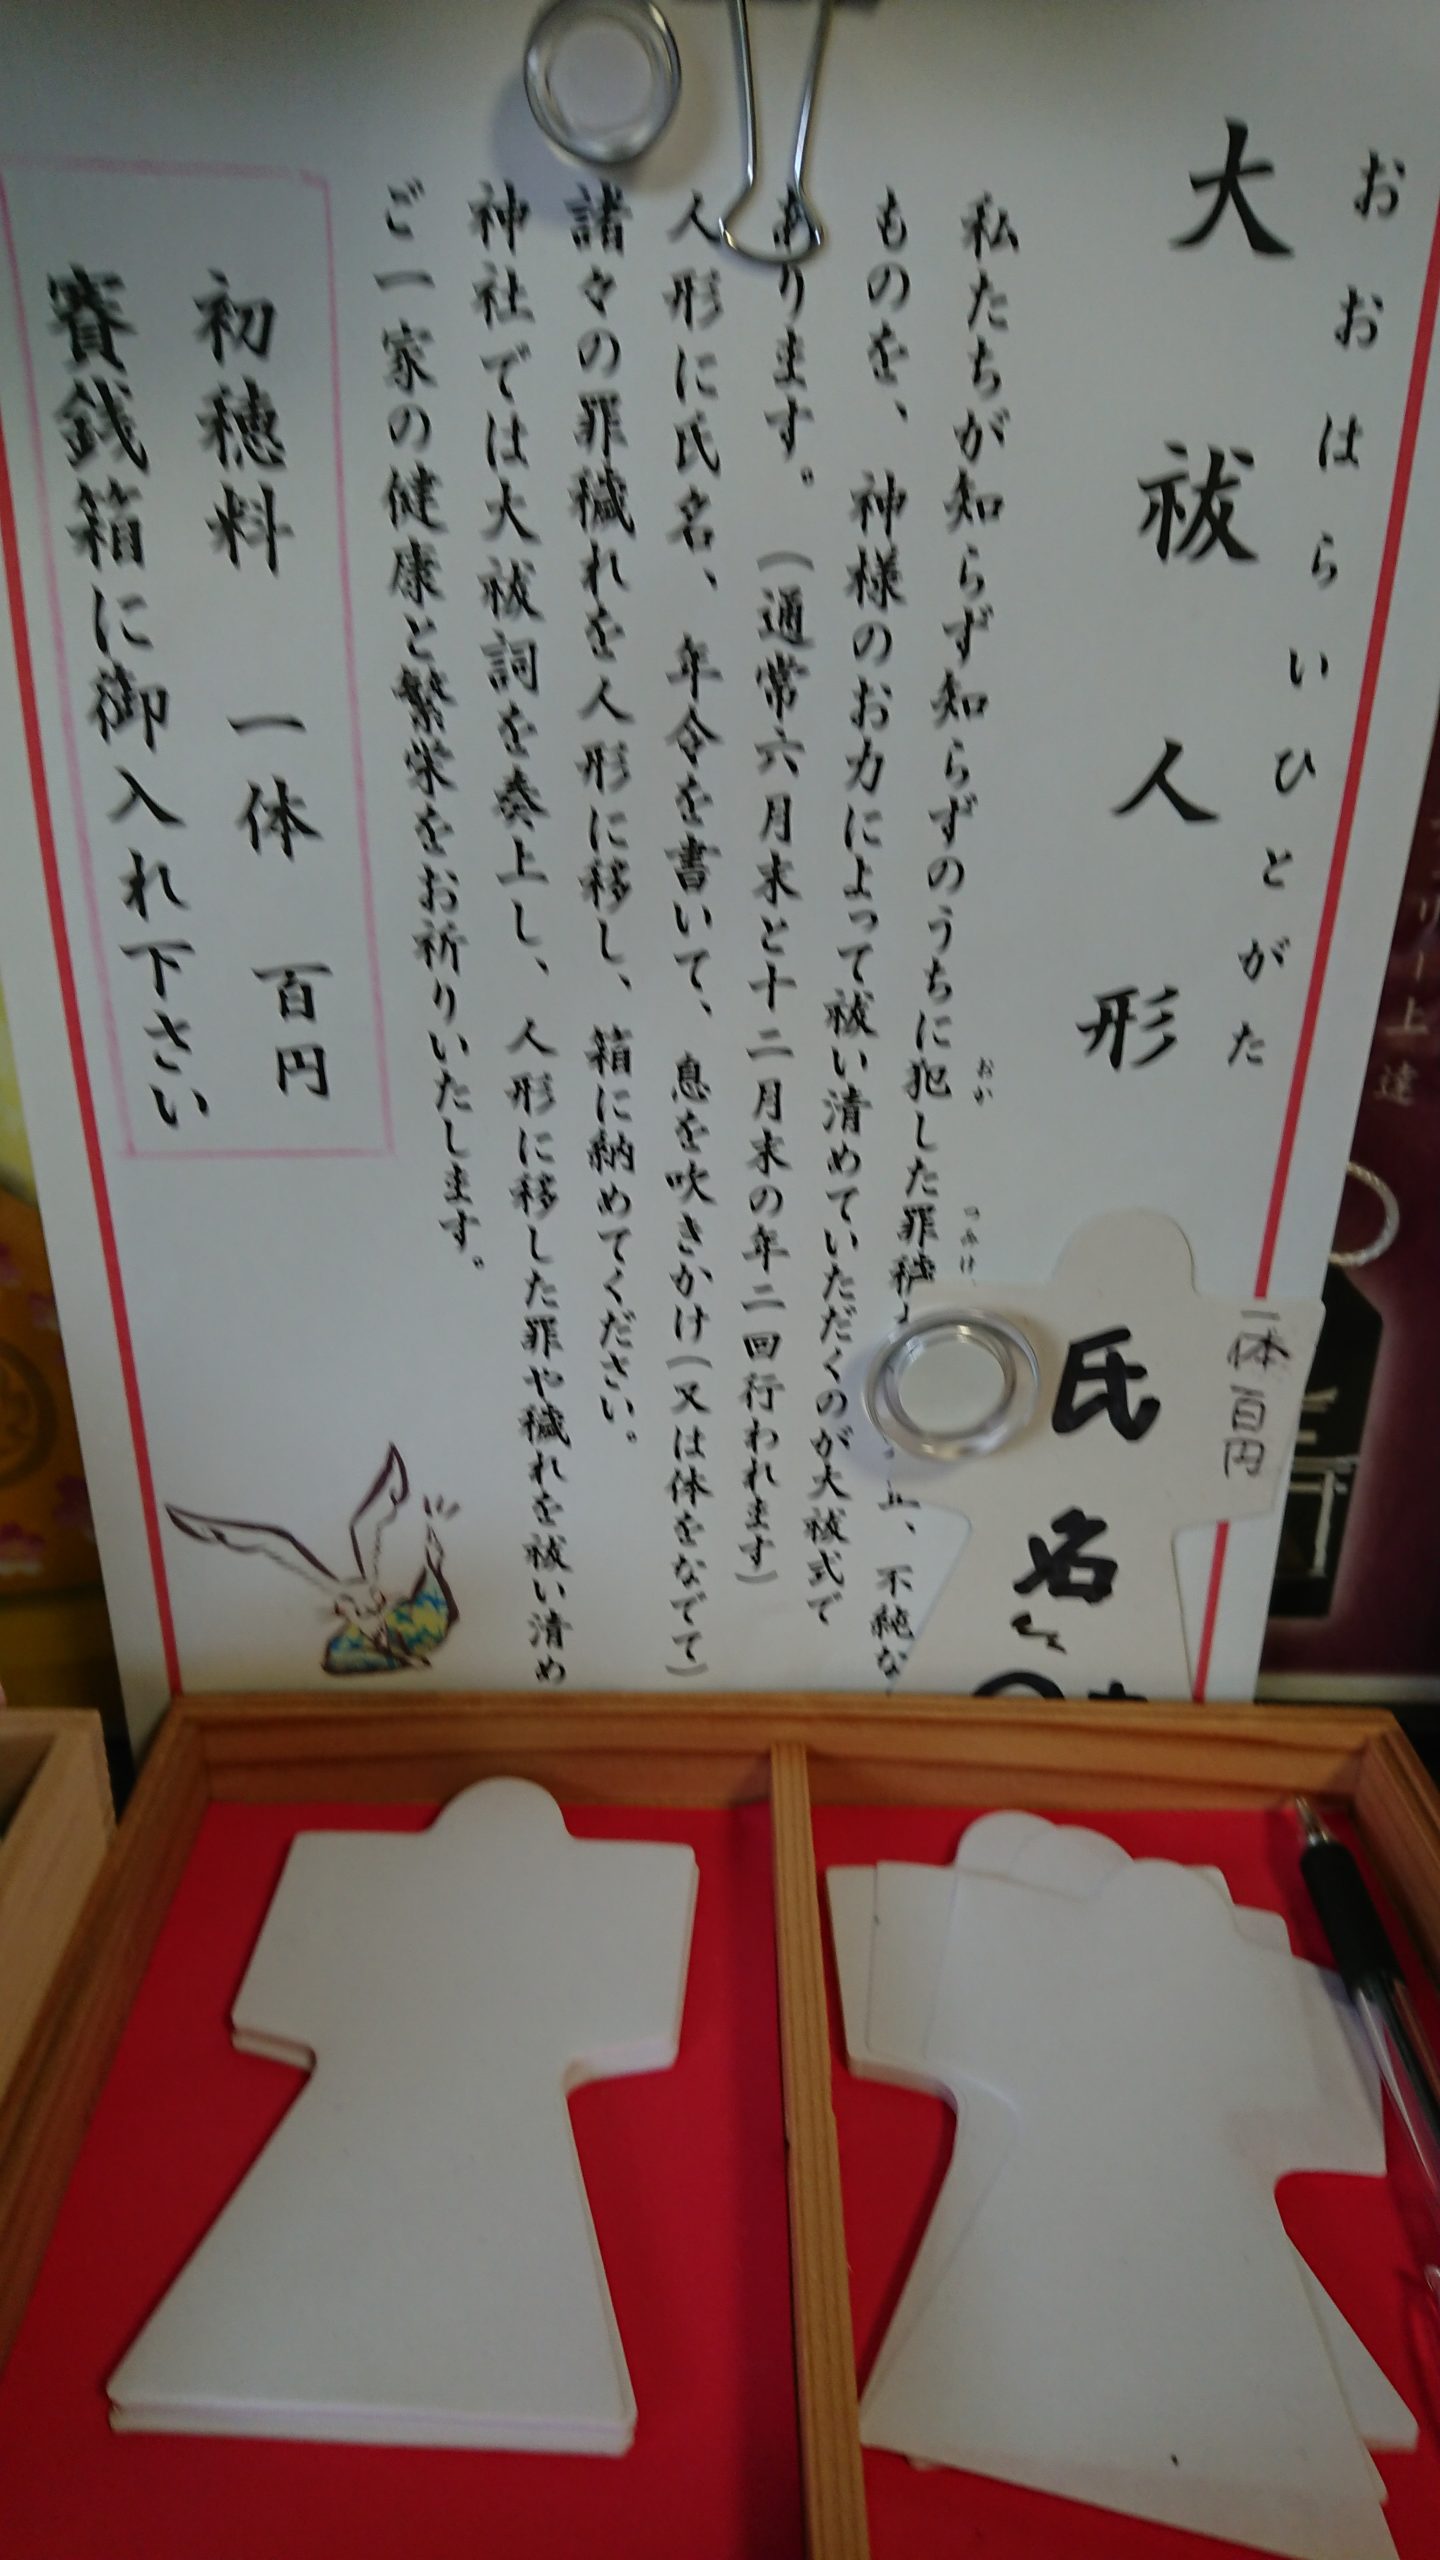 おおはらいひとがた
大祓人形
私たちが知らず知らずのうちに犯した罪穢 不純な
おか
つみけ
ものを、神様のお力によって祓い清めていただくのが大祓式で
あります。(通常六月末と十二月末の年二回行われます)
人形に氏名、年令を書いて、息を吹きかけ(又は体をなでて)
諸々の罪穢れを人形に移し、箱に納めてください。
神社では大祓詞を奏上し、人形に移した罪や穢れを祓い清め
ご一家の健康と繁栄をお祈りいたします。
初穂料 一体 百円
賽銭箱に御入れ下さい
一体百円
氏名
上達